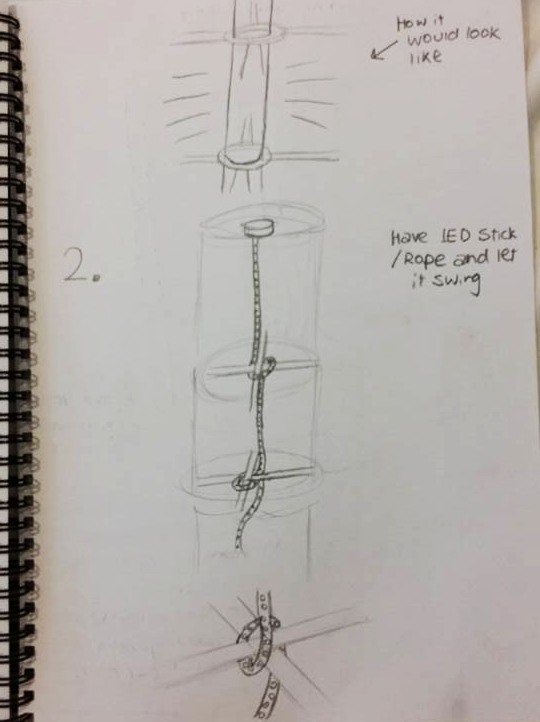 How it
would look
like
2.
Have LED Stick
/Rope and let
it swing